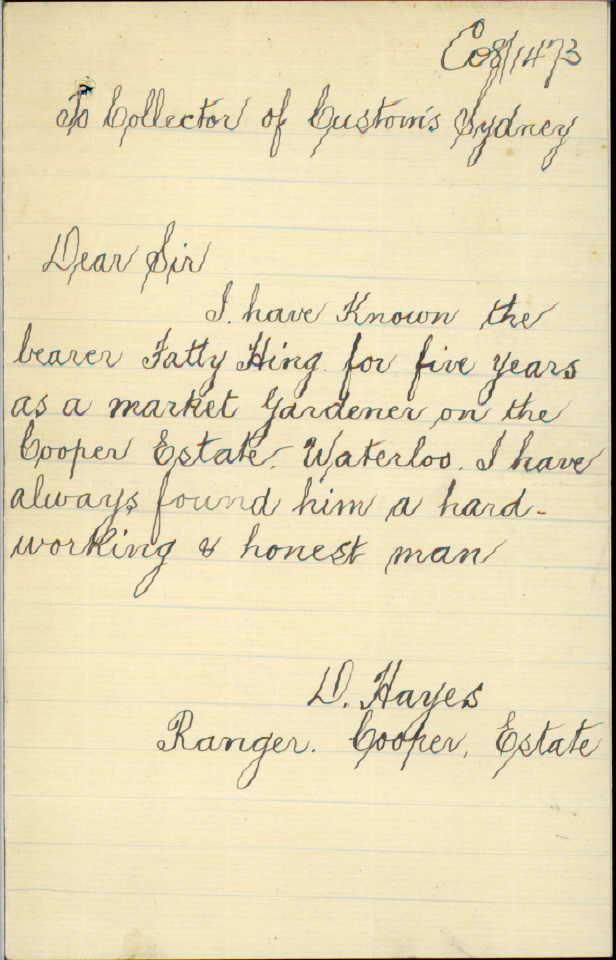 Co8/1473
To Collector of Custom's Sydney
Dear Sir
I. have Known the
bearer Fatty Hing. for five years
as a market gardener on the
Cooper Estate. Waterloo. I have
always found him a hard-
working & honest man
D. Hayes
Ranger. Cooper. Estate